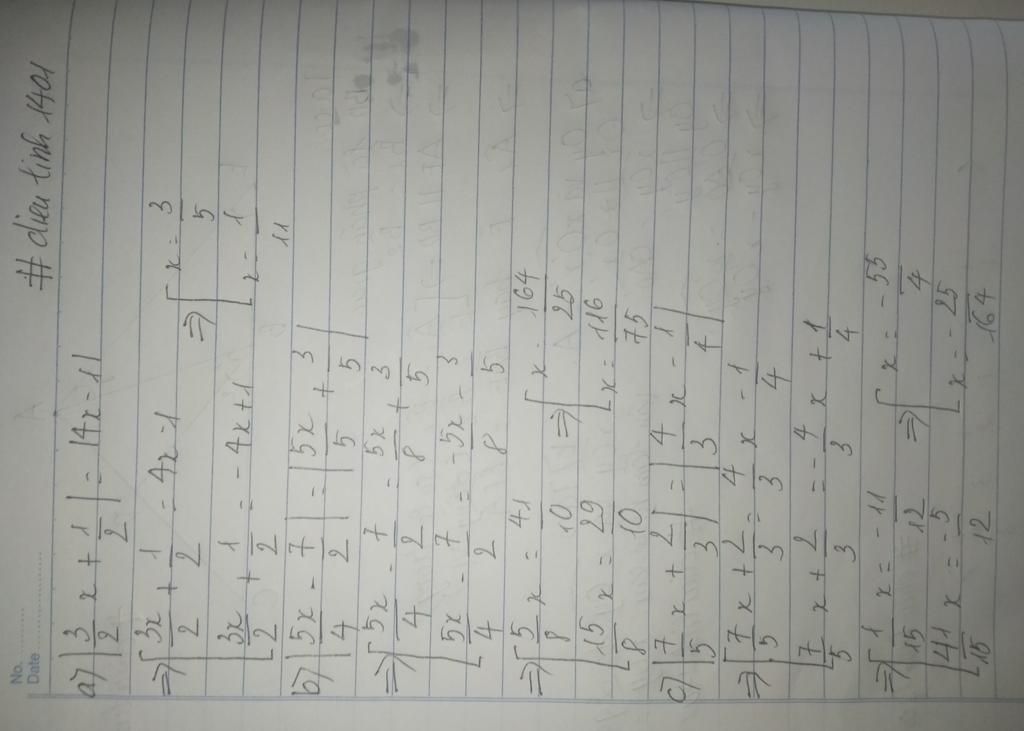 No.
Date
# dien tinh 1401
a) |3/2 x + 1/2| = |4x - 1|
⇒ [ 3x/2 + 1/2 = 4x - 1
⇒ [ x = 3/5
[ 3x/2 + 1/2 = -4x + 1
[ x = 1/11
b) |5x/4 - 7/2| = |5x/5 + 3/5|
⇒ [ 5x/4 - 7/2 = 5x/8 + 3/5
[ 5x/4 - 7/2 = -5x/8 - 3/5
⇒ [ 5/8 x = 41/10 ⇒ [ x = 164/25
[ 15/8 x = 29/10 [ x = 116/75
c) |7/5 x + 2/3| = |4/3 x - 1/4|
⇒ [ 7/5 x + 2/3 = 4/3 x - 1/4
[ 7/5 x + 2/3 = -4/3 x + 1/4
⇒ [ 1/15 x = -11/12 ⇒ [ x = -55/4
[ 41/15 x = -5/12 [ x = -25/164